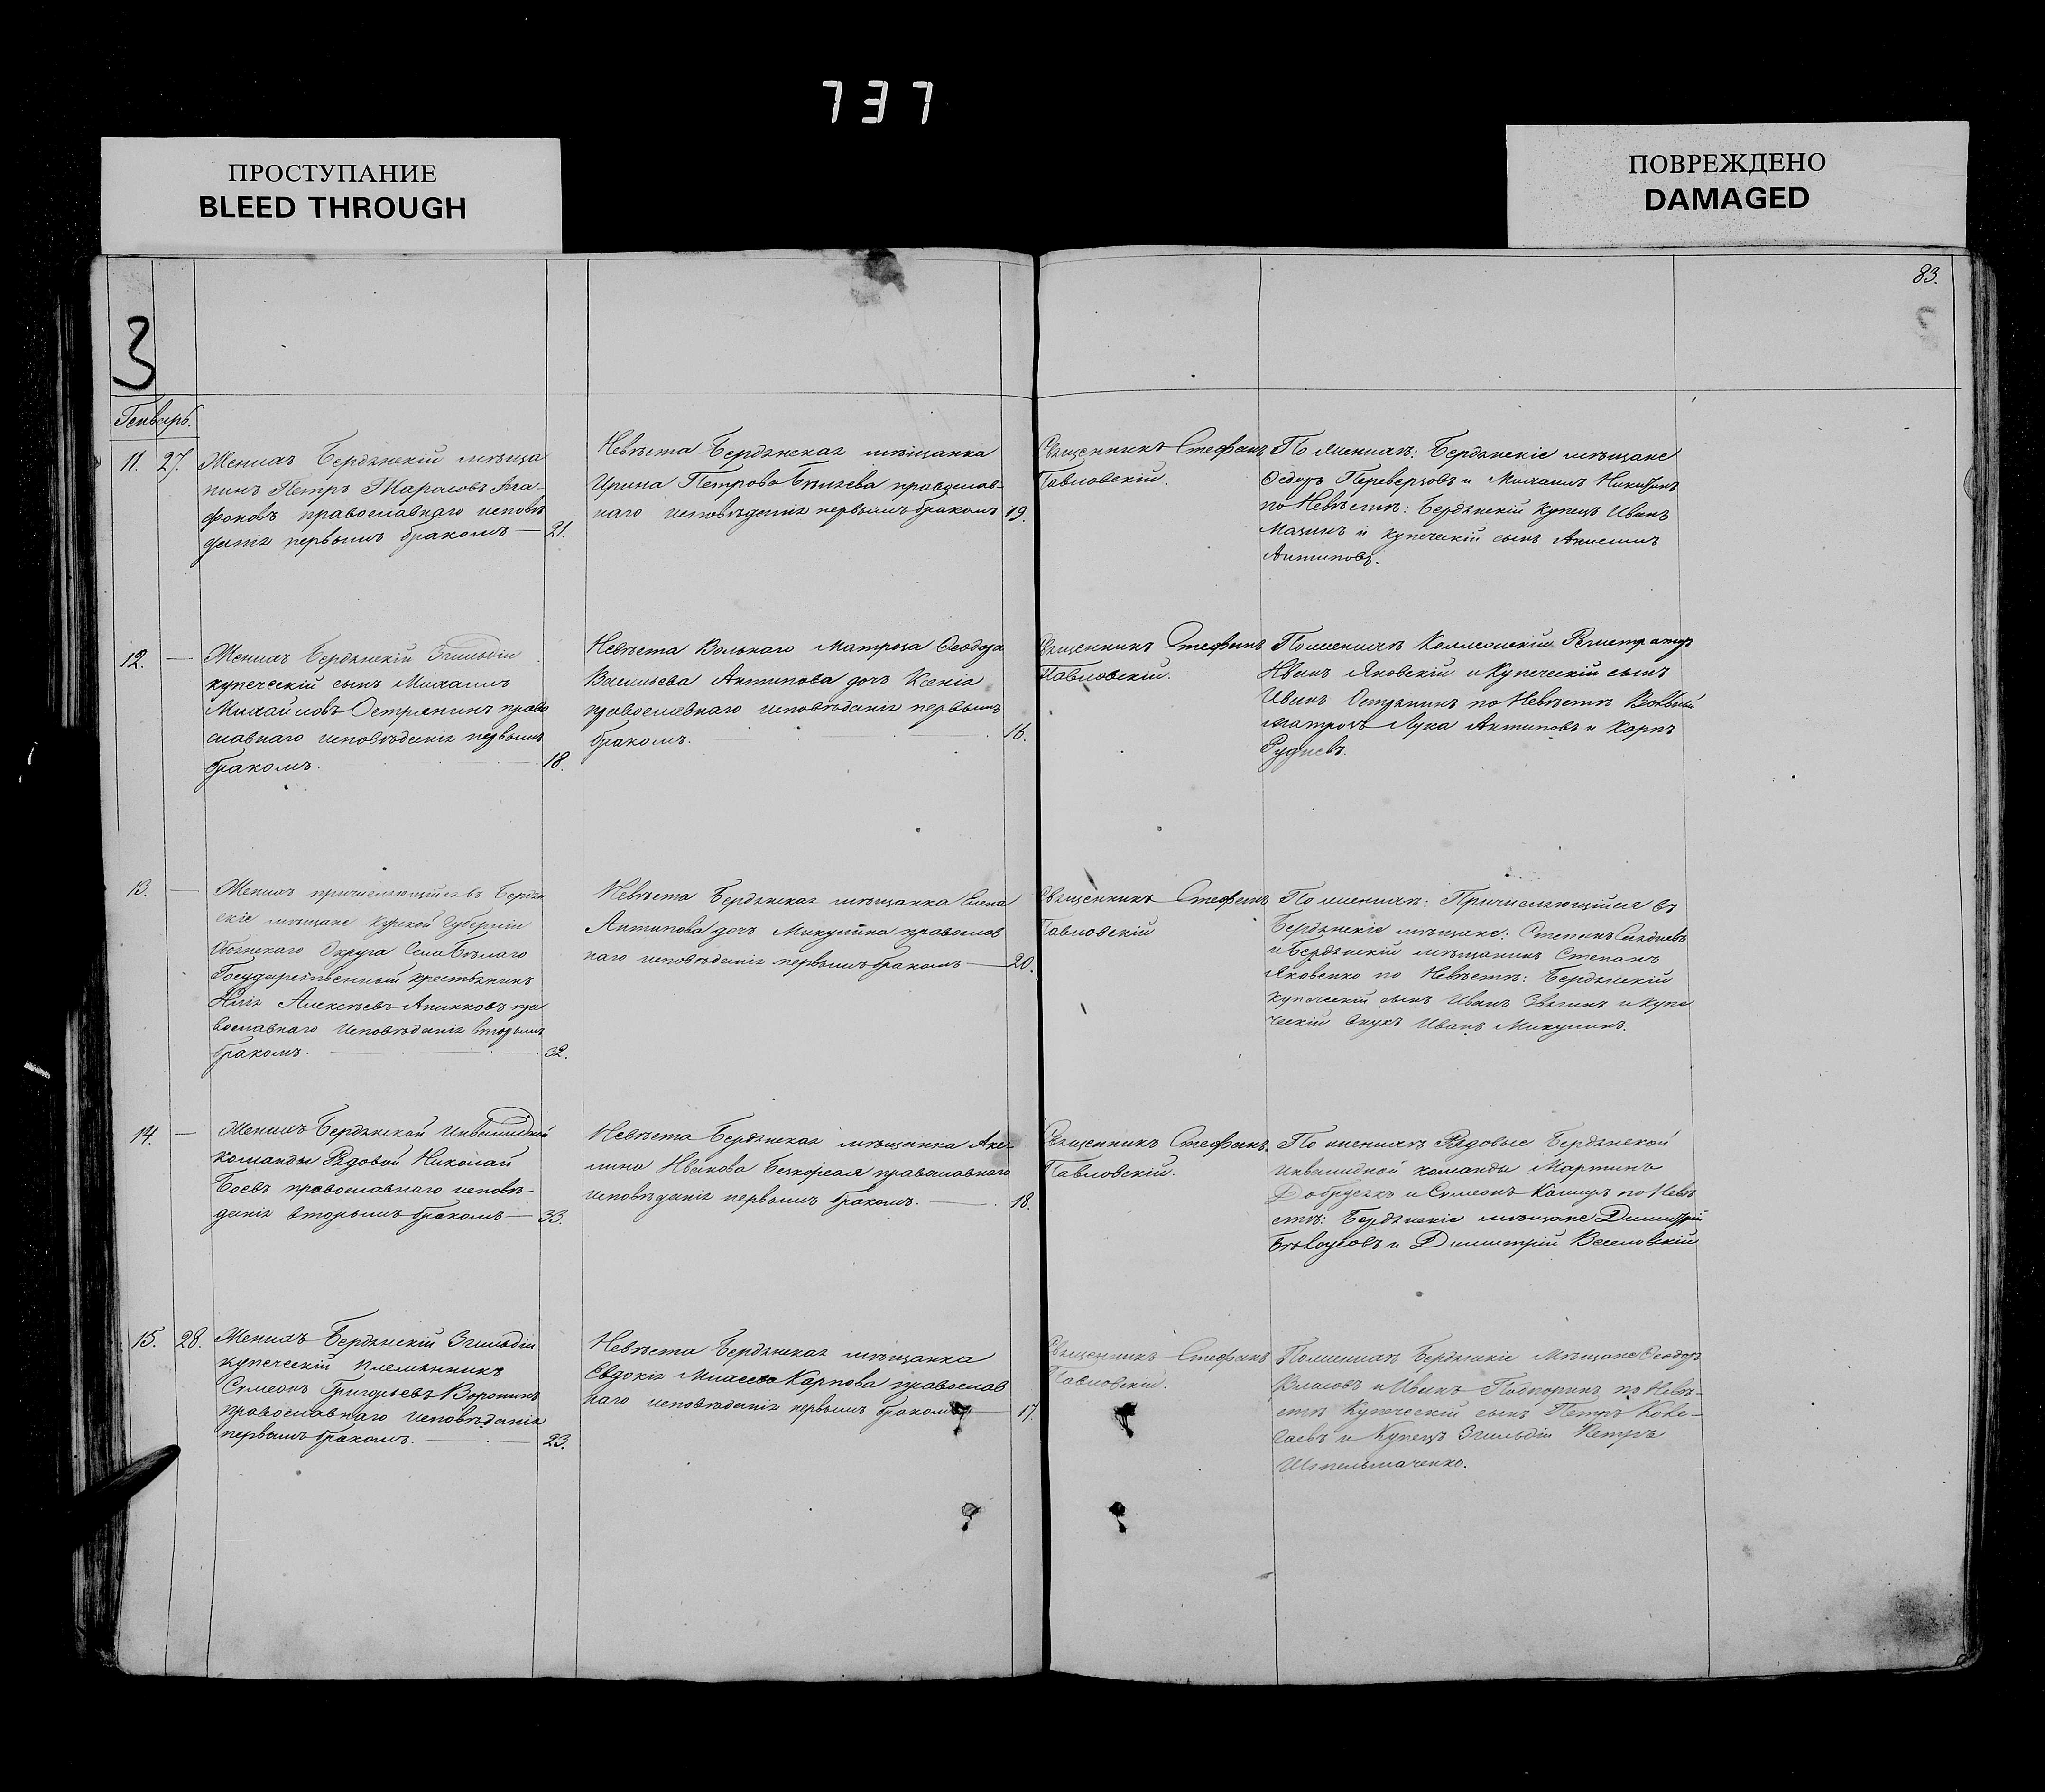 737
ПРОСТУПАНИЕ
BLEED THROUGH
ПОВРЕЖДЕНО
DAMAGED
83.
3
Генварь.
11. 27. Женихъ Бердянскій мѣща
нинъ Петръ Тарасовъ Ага-
фоновъ православнаго исповѣ
данія первымъ бракомъ — 21.
Невѣста Бердянская мѣщанка
Ирина Петрова православ-
наго исповѣданія первымъ бракомъ 19.
Священникъ Стефанъ
Павловскій.
По женихѣ: Бердянскіе мѣщане
Ѳедоръ Переверзовъ и Михаилъ Никитинъ
по Невѣстѣ: Бердянскій купецъ Иванъ
Мазинъ и купеческій сынъ Анисимъ
Антиповъ.
12. — Женихъ Бердянскій 3 гильдіи
купеческій сынъ Михаилъ
Михайловъ Острянинъ право
славнаго исповѣданія первымъ
бракомъ. 18.
Невѣста Вольнаго Матроса Ѳеодора
Васильева Антипова дочь Ксенія
православнаго исповѣданія первымъ
бракомъ. 16.
Священникъ Стефанъ
Павловскій.
По женихѣ Коллежскій Регистраторъ
Иванъ Яновскій и Купеческій сынъ
Иванъ Острянинъ по Невѣстѣ Вольный
матросъ Лука Антиповъ и Карпъ
Рудневъ.
13. — Женихъ причисляющійся въ Бердян
скіе мѣщане Курской Губерніи
Обоянскаго Округа Села Бѣлаго
Государственный крестьянинъ
Илія Алексѣевъ пра
вославнаго исповѣданія вторымъ
бракомъ. 32.
Невѣста Бердянская мѣщанка Елена
Антипова дочь Микулина православ
наго исповѣданія первымъ бракомъ — 20.
Священникъ Стефанъ
Павловскій
По женихѣ: Причисляющійся въ
Бердянскіе мѣщане: Степанъ
и Бердянскій мѣщанинъ Степанъ
Яковенко по Невѣстѣ: Бердянскій
купеческій сынъ Иванъ Звягинъ и купе
ческій внукъ Иванъ Микулинъ.
14. — Женихъ Бердянской Инвалидной
команды Рядовой Николай
Боевъ православнаго исповѣ-
данія вторымъ бракомъ — 33.
Невѣста Бердянская мѣщанка Аку-
лина Иванова православнаго
исповѣданія первымъ бракомъ. — 18.
Священникъ Стефанъ
Павловскій.
По женихѣ Рядовые Бердянской
Инвалидной команды Мартинъ
и Симеонъ по Невѣ
стѣ: Бердянскіе мѣщане Димитрій
Бѣлоусовъ и Димитрій Веселовскій
15. 28. Женихъ Бердянскій 3 гильдіи
купеческій племянникъ
Симеонъ Григорьевъ Воронинъ
православнаго исповѣданія
первымъ бракомъ. 23.
Невѣста Бердянская мѣщанка
Евдокія Карпова православ
наго исповѣданія первымъ бракомъ 17.
Священникъ Стефанъ
Павловскій.
По женихѣ Бердянскіе Мѣщане Ѳеодоръ
Власовъ и Иванъ по Невѣ-
стѣ Купеческій сынъ Петръ
и Купецъ 3 гильдіи Петръ